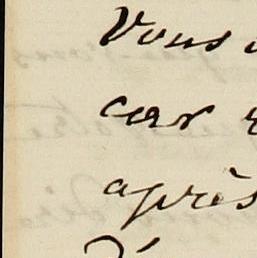 Vous
car
après